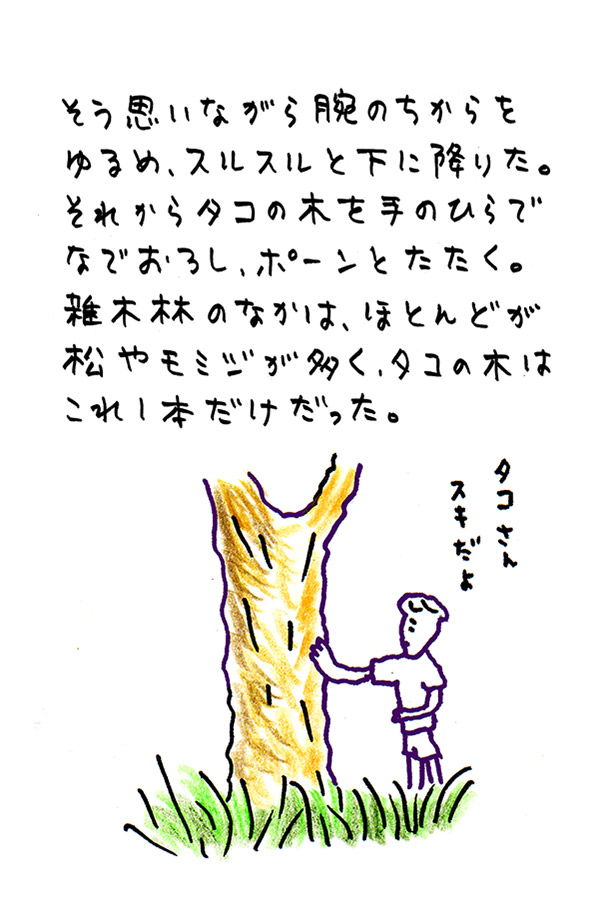 そう思いながら腕のちからを
ゆるめ、スルスルと下に降りた。
それからタコの木を手のひらで
なでおろし、ポーンとたたく。
雑木林のなかは、ほとんどが
松やモミジが多く、タコの木は
これ1本だけだった。
タコさん
スキだよ